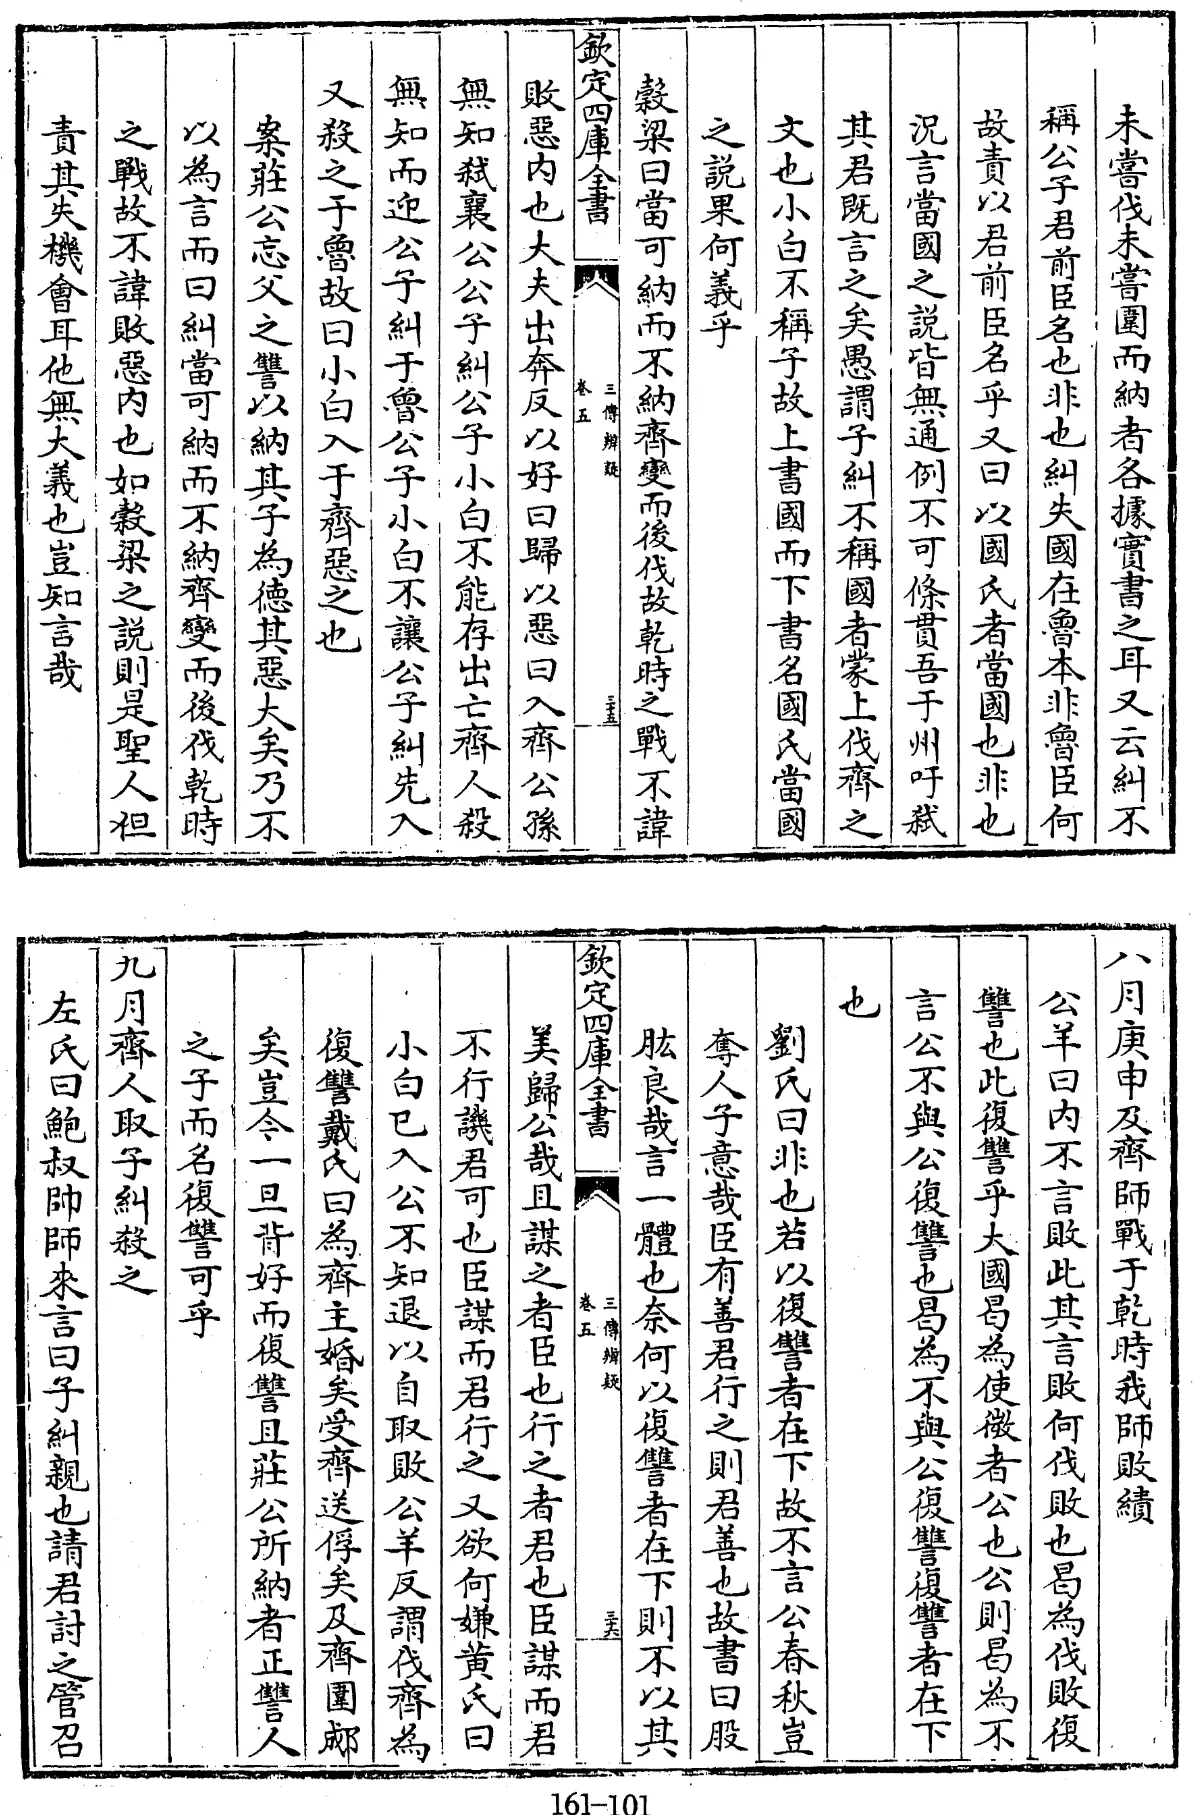 未嘗伐未嘗圍而納者各據實書之耳又云糾不
稱公子君前臣名也非也糾失國在魯本非魯臣何
故責以君前臣名乎又曰以國氏者當國也非也
況言當國之説皆無通例不可條貫吾于州吁弑
其君既言之矣愚謂子糾不稱國者蒙上伐齊之
文也小白不稱子故上書國而下書名國氏當國
之説果何義乎
穀梁曰當可納而不納齊變而後伐故乾時之戰不諱
欽定四庫全書
三傳辨疑
卷五
三十五
敗惡内也大夫出奔反以好曰歸以惡曰入齊公孫
無知弑襄公公子糾公子小白不能存出亡齊人殺
無知而迎公子糾于魯公子小白不讓公子糾先入
又殺之于魯故曰小白入于齊惡之也
案莊公忘父之讐以納其子為德其惡大矣乃不
以為言而曰糾當可納而不納齊變而後伐乾時
之戰故不諱敗惡内也如穀梁之説則是聖人但
責其失機會耳他無大義也豈知言哉
八月庚申及齊師戰于乾時我師敗績
公羊曰内不言敗此其言敗何伐敗也曷為伐敗復
讐也此復讐乎大國曷為使微者公也公則曷為不
言公不與公復讐也曷為不與公復讐復讐者在下
也
劉氏曰非也若以復讐者在下故不言公春秋豈
奪人子意哉臣有善君行之則君善也故書曰股
肱良哉言一體也奈何以復讐者在下則不以其
欽定四庫全書
三傳辨疑
卷五
三十六
美歸公哉且謀之者臣也行之者君也臣謀而君
不行譏君可也臣謀而君行之又欲何嫌黄氏曰
小白已入公不知退以自取敗公羊反謂伐齊為
復讐戴氏曰為齊主婚矣受齊送俘矣及齊圍郕
矣豈今一旦背好而復讐且莊公所納者正讐人
之子而名復讐可乎
九月齊人取子糾殺之
左氏曰鮑叔帥師來言曰子糾親也請君討之管召
161-101